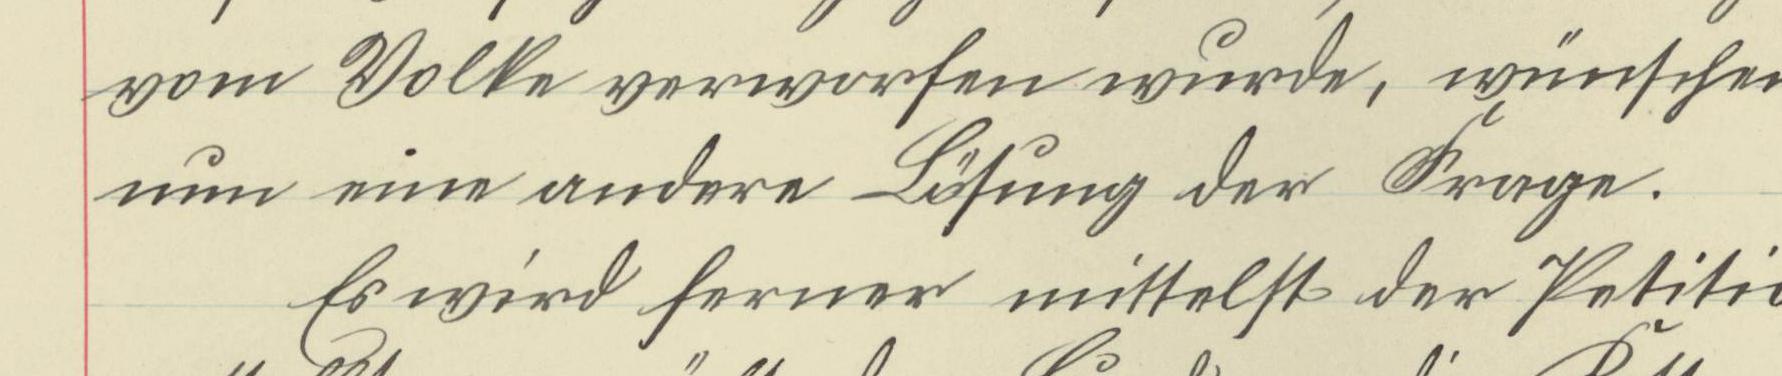 vom Volke verworfen wurde, wünschen
nun eine andere Lösung der Frage.
Es wird ferner mittelst der Petitio